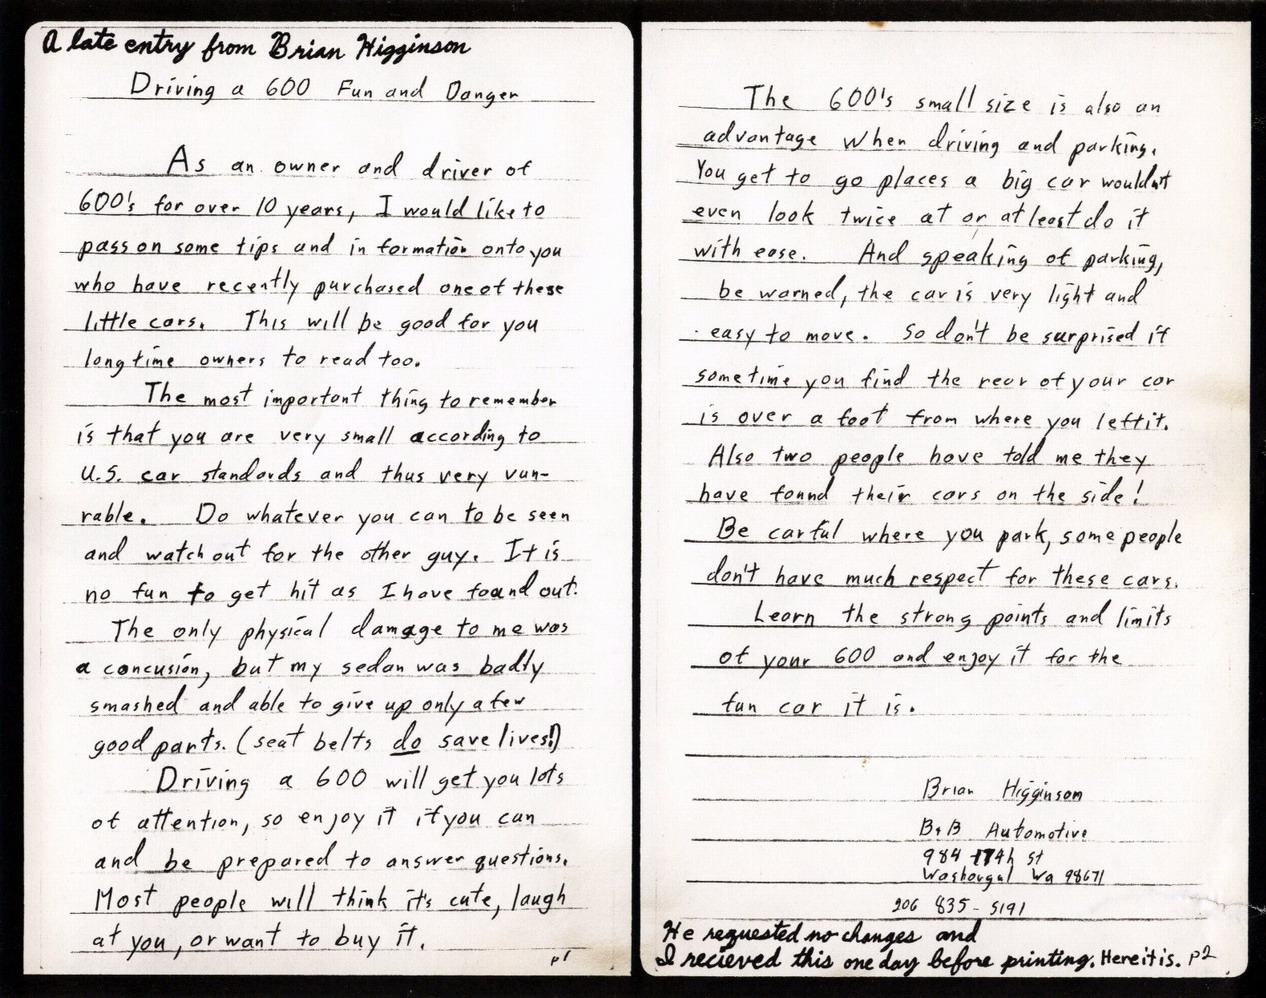 A late entry from Brian Higginson
Driving a 600 Fun and Danger
As an owner and driver of
600's for over 10 years, I would like to
pass on some tips and in formation onto you
who have recently purchased one of these
little cars. This will be good for you
long time owners to read too.
The most important thing to remember
is that you are very small according to
U.S. car standards and thus very vun-
rable. Do whatever you can to be seen
and watch out for the other guy. It is
no fun to get hit as I have found out.
The only physical damage to me was
a concusion, but my sedan was badly
smashed and able to give up only a few
good parts. (seat belts do save lives!)
Driving a 600 will get you lots
of attention, so enjoy it if you can
and be prepared to answer questions.
Most people will think it's cute, laugh
at you, or want to buy it.
p1
The 600's small size is also an
advantage when driving and parking.
You get to go places a big car wouldn't
even look twice at or at least do it
with ease. And speaking of parking,
be warned, the car is very light and
easy to move. So don't be surprised if
sometime you find the rear of your car
is over a foot from where you left it.
Also two people have told me they
have found their cars on the side!
Be carful where you park, some people
don't have much respect for these cars.
Learn the strong points and limits
of your 600 and enjoy it for the
fun car it is.
Brian Higginson
B+B Automotive
984 17th st
Washougal Wa 98671
206 835-5191
He requested no changes and
I recieved this one day before printing. Here it is. p2